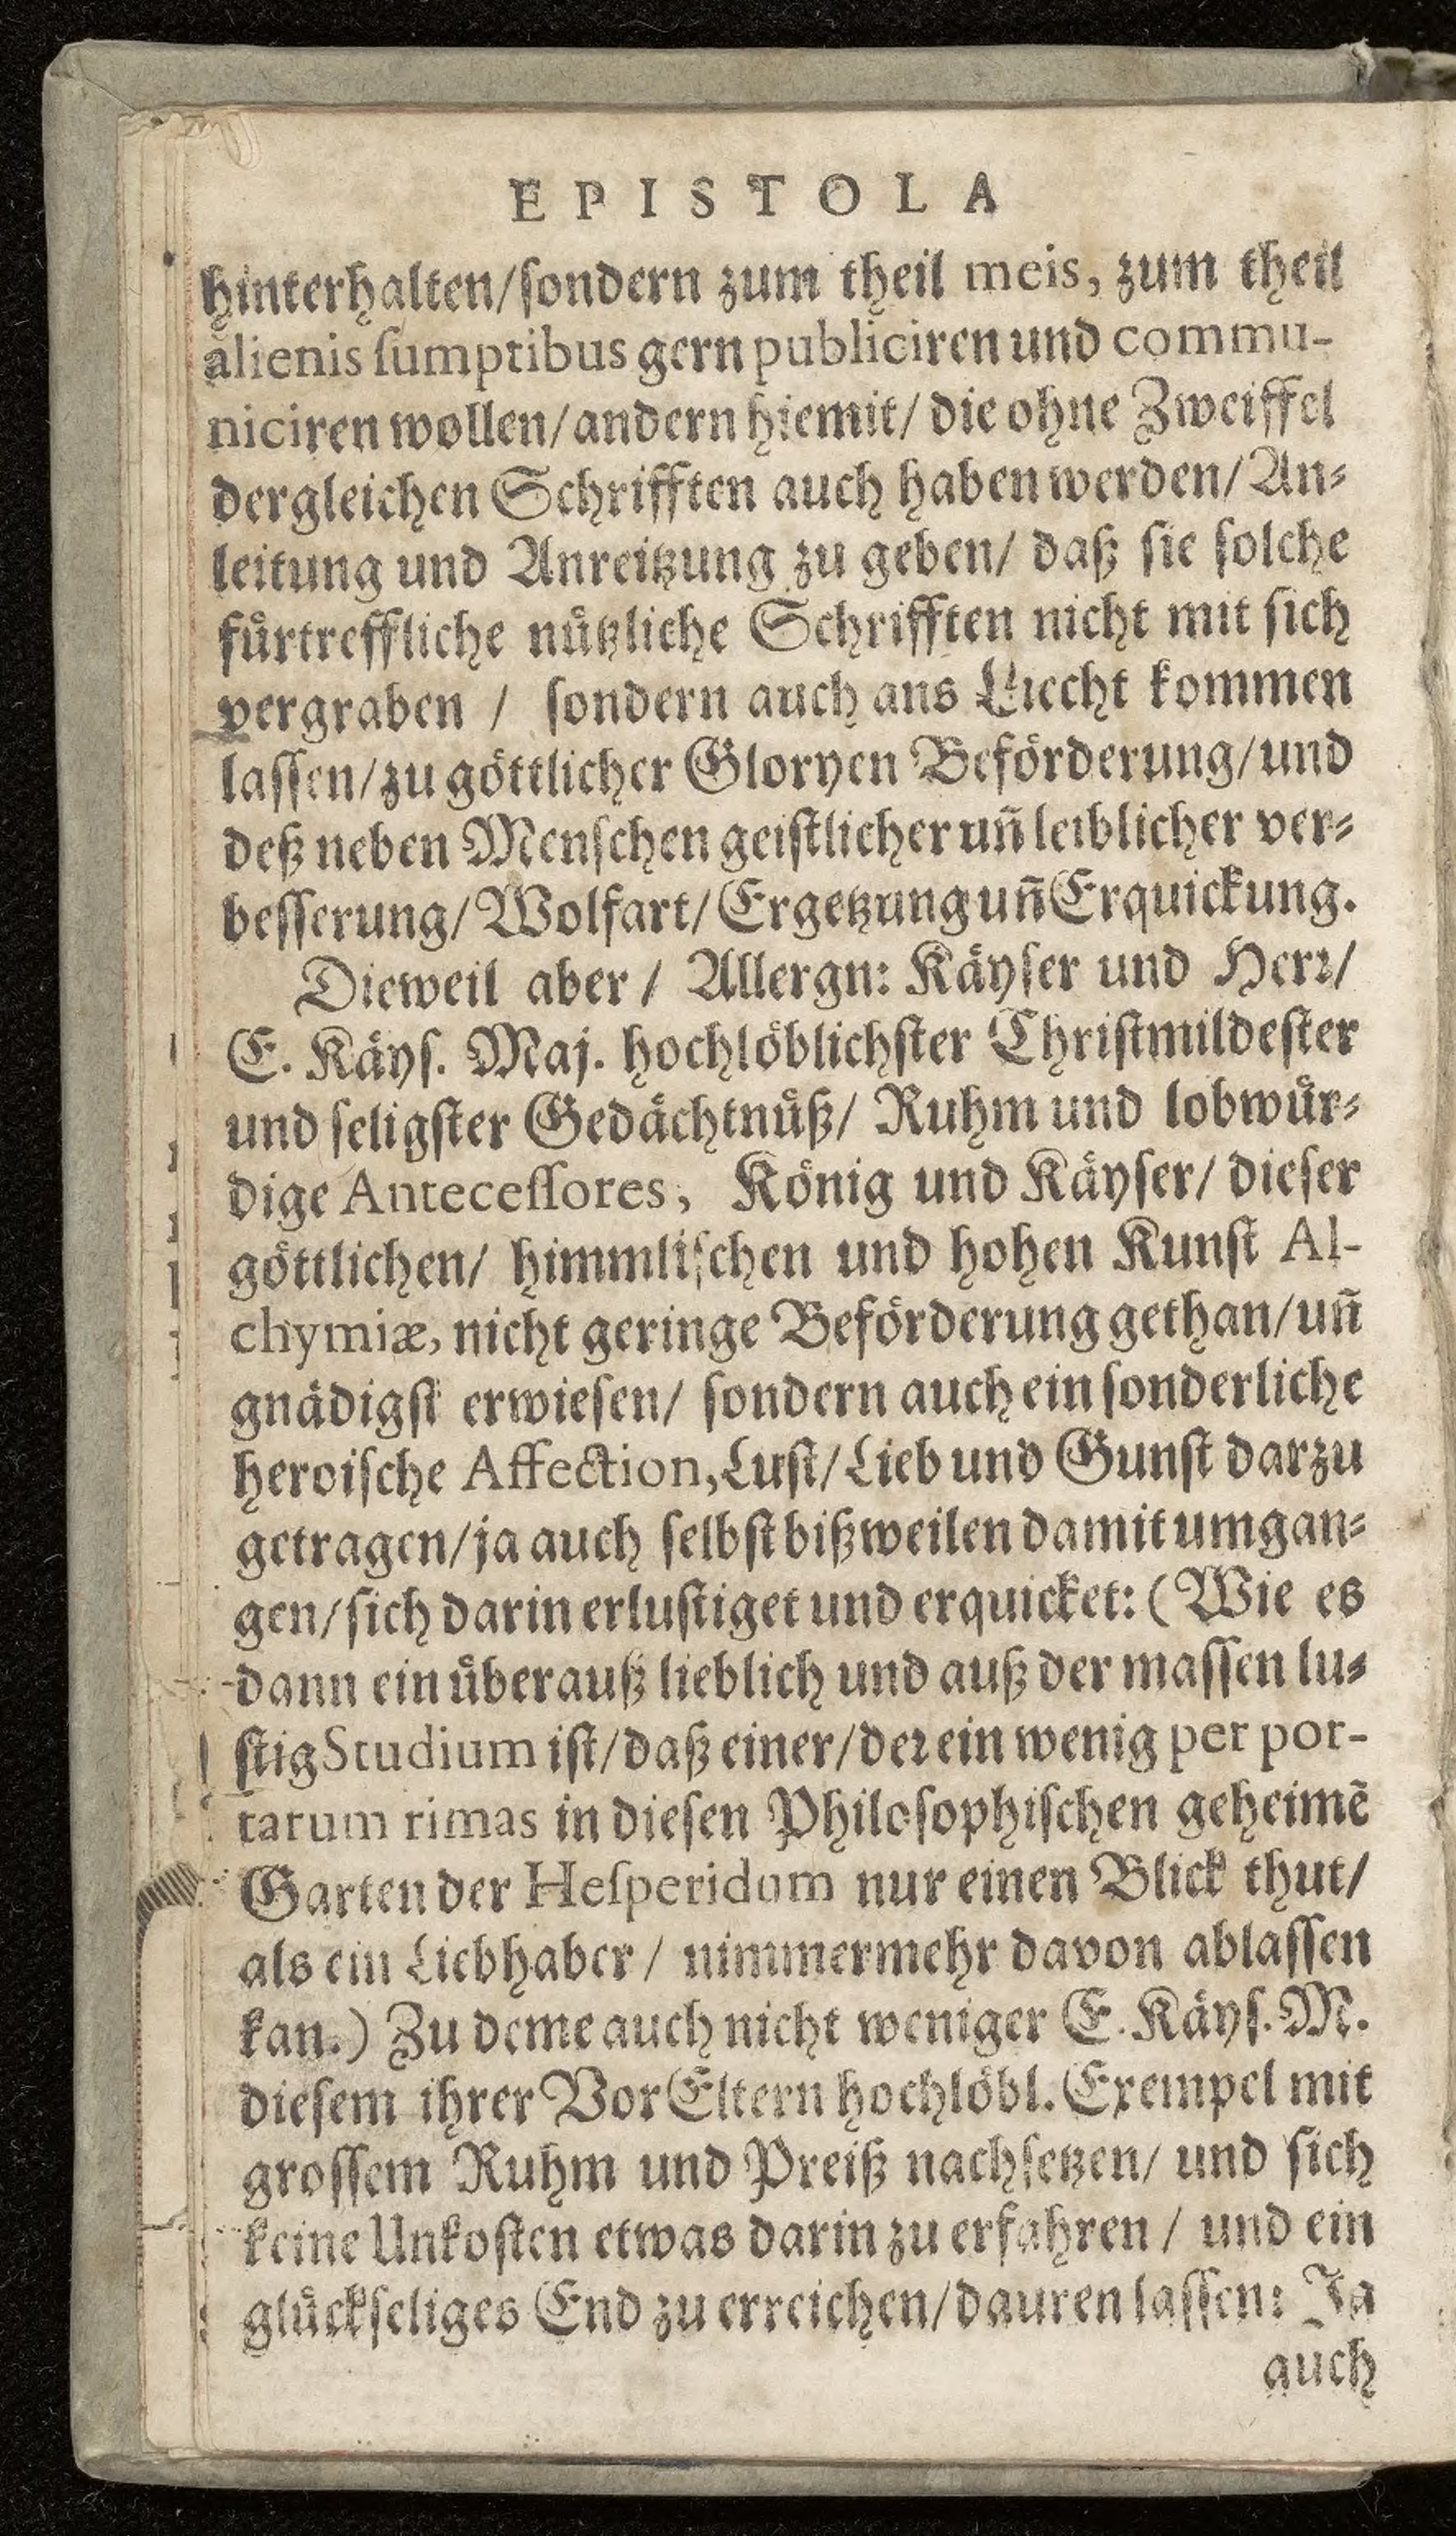 EPISTOLA
hinterhalten/sondern zum theil meis, zum theil
alienis ſumptibus gern publiciren und commu-
niciren wollen/andern hiemit/ die ohne Zweiffel
dergleichen Schrifften auch haben werden/ An⸗
leitung und Anreitzung zu geben/ daß ſie ſolche
fuͤrtreffliche nuͤtzliche Schrifften nicht mit ſich
vergraben / ſondern auch ans Liecht kommen
laſſen/zu goͤttlicher Gloryen Befoͤrderung/und
deß neben Menſchen geiſtlicher uñ leiblicher ver⸗
beſſerung/ Wolfart/ Ergetzung uñ Erquickung.
Dieweil aber / Allergn: Kaͤyſer und Herꝛ/
E. Kaͤyſ. Maj. hochloͤblichſter Chriſtmildeſter
und ſeligſter Gedaͤchtnuͤß/ Ruhm und lobwuͤr⸗
dige Anteceſſores, Koͤnig und Kaͤyſer/ dieſer
goͤttlichen/ himmliſchen und hohen Kunſt Al-
chymiæ, nicht geringe Befoͤrderung gethan/ uñ
gnaͤdigſt erwieſen/ ſondern auch ein ſonderliche
heroiſche Affection, Luſt/ Lieb und Gunſt darzu
getragen/ja auch ſelbſt bißweilen damit umgan⸗
gen/ſich darin erluſtiget und erquicket: (Wie es
dann ein uͤberauß lieblich und auß der maſſen lu⸗
ſtig Studium iſt/daß einer/deꝛ ein wenig per por-
tarum rimas in dieſen Philoſophiſchen geheimē
Garten der Heſperidum nur einen Blick thut/
als ein Liebhaber / nimmermehr davon ablaſſen
kan.) Zu deme auch nicht weniger E. Kaͤyſ. M.
dieſem ihrer VorEltern hochloͤbl. Exempel mit
groſſem Ruhm und Preiß nachſetzen/ und ſich
keine Unkoſten etwas darin zu erfahren / und ein
gluͤckſeliges End zu erreichen/dauren laſſen: Ja
auch